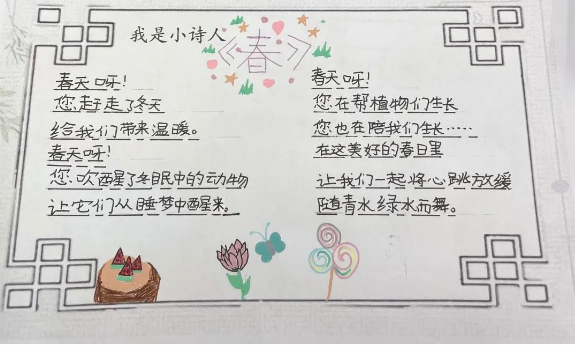 我是小诗人
《春》
春天呀!
您赶走了冬天
给我们带来温暖。
春天呀!
您吹醒了冬眠中的动物
让它们从睡梦中醒来。
春天呀!
您在帮植物们生长
您也在陪我们生长……
在这美好的春日里
让我们一起将心跳放缓
随青水绿水而舞。